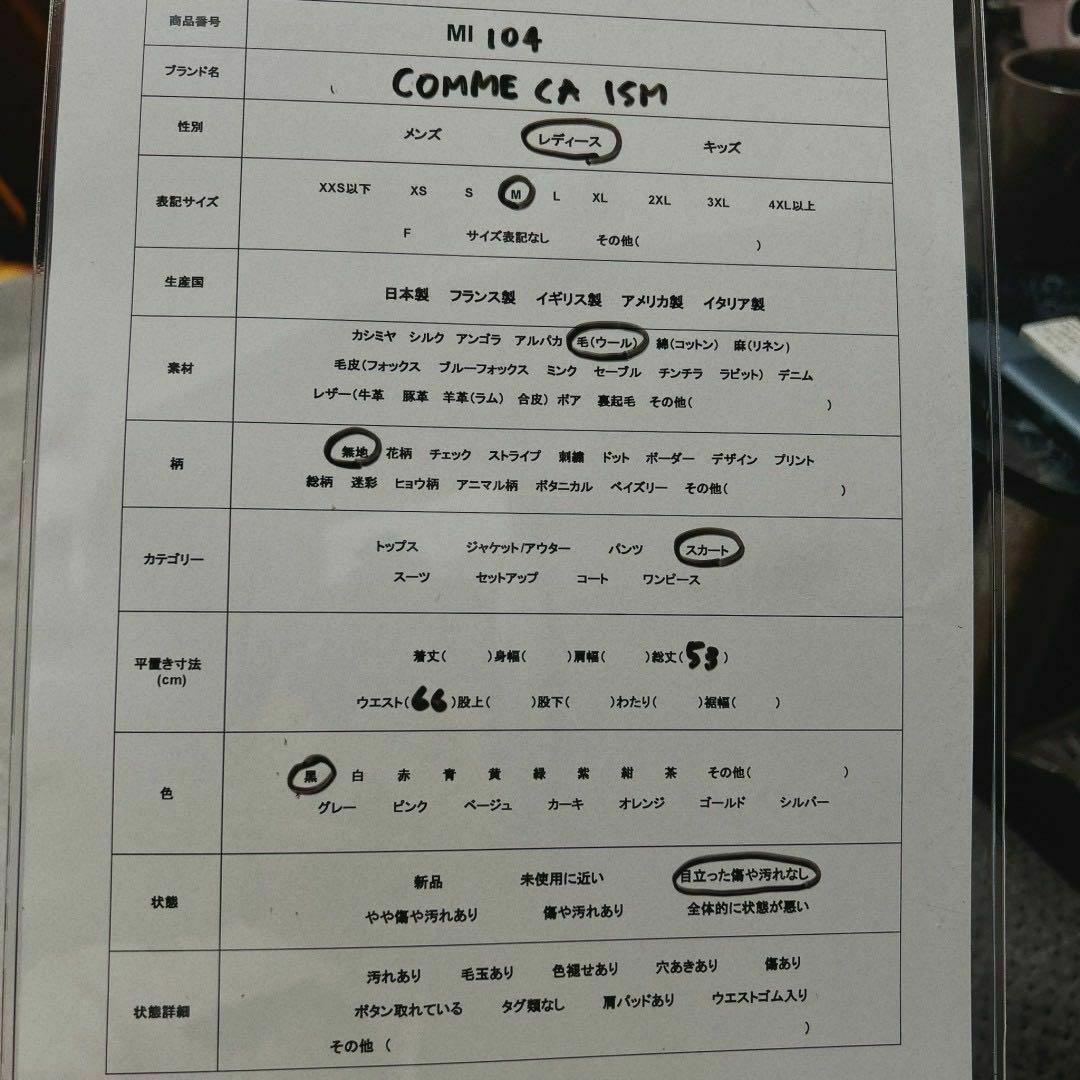 商品番号 MI 104
ブランド名 COMME CA ISM
性別 メンズ レディース キッズ
表記サイズ XXS以下 XS S M L XL 2XL 3XL 4XL以上
F サイズ表記なし その他( )
生産国 日本製 フランス製 イギリス製 アメリカ製 イタリア製
素材 カシミヤ シルク アンゴラ アルパカ 毛(ウール) 綿(コットン) 麻(リネン)
毛皮(フォックス ブルーフォックス ミンク セーブル チンチラ ラビット) デニム
レザー(牛革 豚革 羊革(ラム) 合皮) ボア 裏起毛 その他( )
柄 無地 花柄 チェック ストライプ 刺繍 ドット ボーダー デザイン プリント
総柄 迷彩 ヒョウ柄 アニマル柄 ボタニカル ペイズリー その他( )
カテゴリー トップス ジャケット/アウター パンツ スカート
スーツ セットアップ コート ワンピース
平置き寸法 (cm) 着丈( )身幅( )肩幅( )総丈(53)
ウエスト(66)股上( )股下( )わたり( )裾幅( )
色 黒 白 赤 青 黄 緑 紫 紺 茶 その他( )
グレー ピンク ベージュ カーキ オレンジ ゴールド シルバー
状態 新品 未使用に近い 目立った傷や汚れなし
やや傷や汚れあり 傷や汚れあり 全体的に状態が悪い
状態詳細 汚れあり 毛玉あり 色褪せあり 穴あきあり 傷あり
ボタン取れている タグ類なし 肩パッドあり ウエストゴム入り
その他 ( )